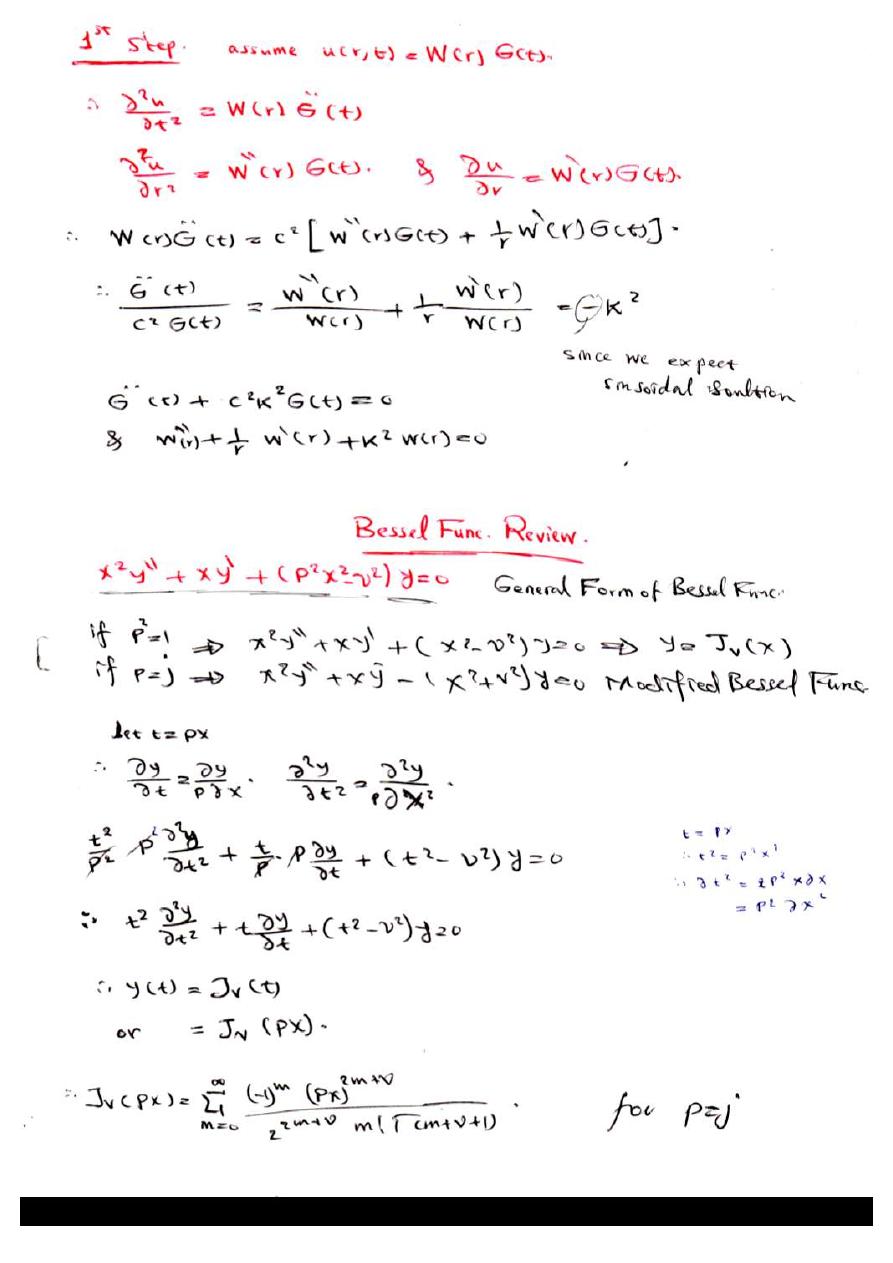 1st Step. assume u(r,t) = W(r) G(t).
∴ ∂²u/∂t² = W(r) G̈(t)
∂²u/∂r² = W''(r) G(t). & ∂u/∂r = W'(r) G(t).
∴ W(r) G̈(t) = c² [ W''(r) G(t) + 1/r W'(r) G(t) ].
∴ G̈(t) / c² G(t) = W''(r) / W(r) + 1/r W'(r) / W(r) = - K²
since we expect
G̈(t) + c²K² G(t) = 0
& W''(r) + 1/r W'(r) + K² W(r) = 0
Bessel Func. Review.
x²y'' + xy' + (P²x² - ν²) y = 0 General Form of Bessel Func.
if P² = 1 ⇒ x²y'' + xy' + (x² - ν²) y = 0 ⇒ y = Jν(x)
if P = j ⇒ x²y'' + xy' - (x² + ν²) y = 0 Modified Bessel Func
let t = px
∴ ∂y/∂t = ∂y/p∂x . ∂²y/∂t² = ∂²y/p∂x² .
t²/p² p² ∂²y/∂t² + t/p . p ∂y/∂t + (t² - ν²) y = 0
t = px
∴ t² = p²x²
∴ ∂t² = 2p² x∂x
= p² ∂x²
∴ t² ∂²y/∂t² + t ∂y/∂t + (t² - ν²) y = 0
∴ y(t) = Jν(t)
or = Jν(px).
∴ Jν(px) = Σ m=0 ∞ (-1)^m (px)^2m+ν / 2^2m+ν m! Γ(m+ν+1) . for p=j